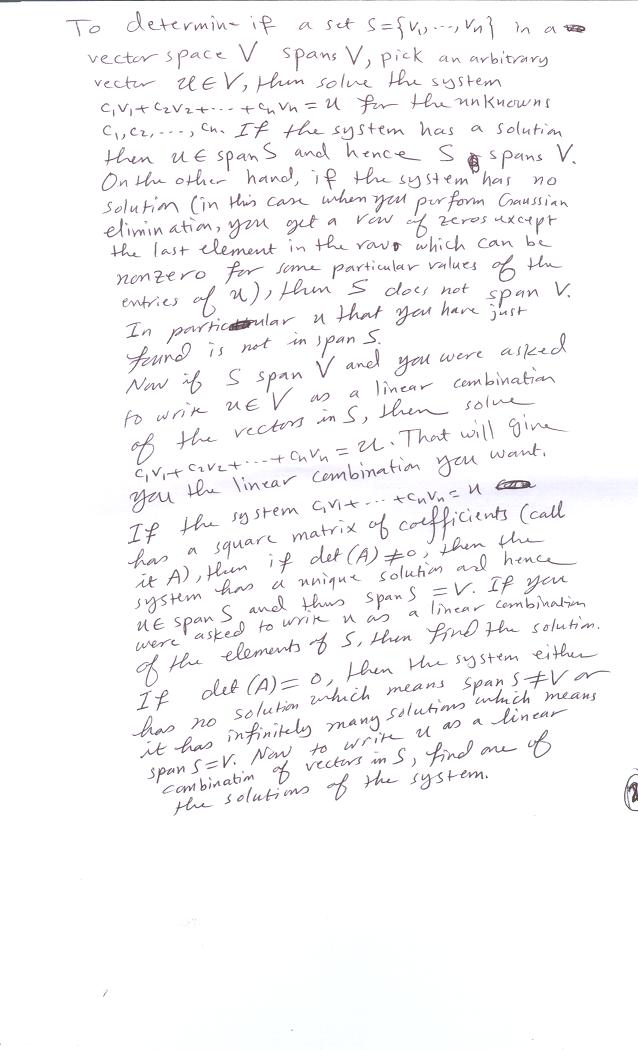 To determine if a set S={v₁,...,vₙ} in a
vector space V spans V, pick an arbitrary
vector u∈V, then solve the system
c₁v₁+c₂v₂+...+cₙvₙ=u for the unknowns
c₁,c₂,...,cₙ. If the system has a solution
then u∈spanS and hence S spans V.
On the other hand, if the system has no
solution (in this case when you perform Gaussian
elimination, you get a row of zeros except
the last element in the row which can be
nonzero for some particular values of the
entries of u), then S does not span V.
In particular u that you have just
found is not in span S.
Now if S span V and you were asked
to write u∈V as a linear combination
of the vectors in S, then solve
c₁v₁+c₂v₂+...+cₙvₙ=u. That will give
you the linear combination you want.
If the system c₁v₁+...+cₙvₙ=u
has a square matrix of coefficients (call
it A), then if det(A)≠0, then the
system has a unique solution and hence
u∈spanS and thus spanS=V. If you
were asked to write u as a linear combination
of the elements of S, then find the solution.
If det(A)=0, then the system either
has no solution which means spanS≠V or
it has infinitely many solutions which means
spanS=V. Now to write u as a linear
combination of vectors in S, find one of
the solutions of the system.
2